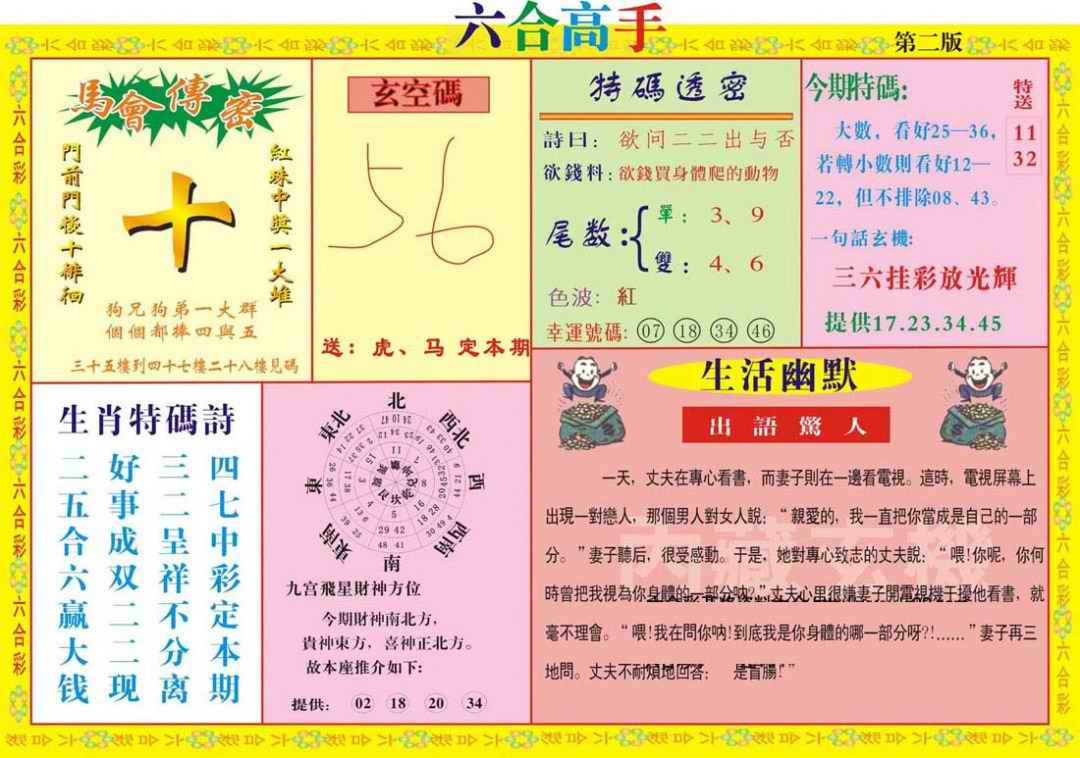 六合高手
第二版
馬會傳密
門前門後十徘徊
十
紅珠中奬一大堆
狗兄狗弟一大群
個個都棒四與五
三十五樓到四十七樓二十八樓見碼
玄空碼
56
送：虎、马 定本期
特碼透密
詩曰：欲问二二出与否
欲錢料：欲錢買身體爬的動物
尾数：
單：3、9
雙：4、6
色波：紅
幸運號碼：07 18 34 46
今期特碼:
特送
11
32
大數，看好25—36，
若轉小數則看好12—
22，但不排除08、43。
一句話玄機:
三六挂彩放光輝
提供17.23.34.45
生肖特碼詩
二五合六赢大钱
好事成双二二现
三二呈祥不分离
四七中彩定本期
北
西北
西
西南
南
東南
東
東北
九宫飛星財神方位
今期財神南北方，
貴神東方，喜神正北方。
故本座推介如下:
提供: 02 18 20 34
生活幽默
出語驚人
一天，丈夫在專心看書，而妻子則在一邊看電視。這時，電視屏幕上
出現一對戀人，那個男人對女人說：“親愛的，我一直把你當成是自己的一部
分。”妻子聽后，很受感動。于是，她對專心致志的丈夫說：“喂!你呢，你何
時曾把我視為你身體的一部分呐?”丈夫心里很嫌妻子開電視機干擾他看書，就
毫不理會。“喂!我在問你呐!到底我是你身體的哪一部分呀?!……”妻子再三
地問。丈夫不耐煩地回答： 是盲腸!”
内藏玄機
六合彩